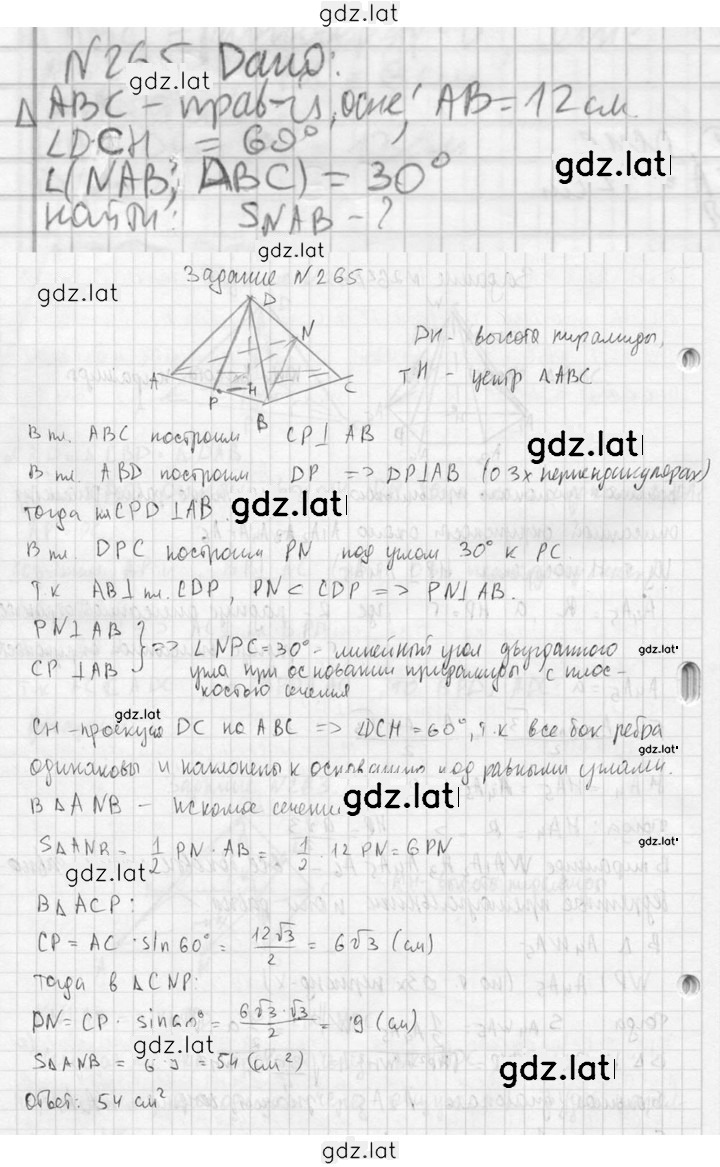 gdz.lat
N265 Дано:
gdz.lat
Δ ABC – прав-ая, осне, AB = 12 см.
∠DCH = 60°
gdz.lat
∠(NAB; ABC) = 30°
Найти: S NAB – ?
gdz.lat
Задание N265
gdz.lat
D
N
A
P
H
B
C
DH - высота пирамиды,
т H - центр ΔABC
В пл. ABC построим CP⊥AB
gdz.lat
В пл. ABD построим DP => DP⊥AB (о 3х перпендикулярах)
тогда пл CPD ⊥AB.
gdz.lat
В пл. DPC построим PN под углом 30° к PC.
т.к AB⊥пл. CDP, PN ⊂ CDP => PN⊥AB.
PN⊥AB
CP⊥AB } => ∠NPC=30° - линейный угол двугранного
угла при основании пирамиды с плос-
костью сечения
gdz.lat
gdz.lat
CH-проекция DC на ABC => ∠DCH=60°, т.к все бок ребра
gdz.lat
одинаковы и наклонены к основанию под равными углами.
В Δ ANB – искомое сечение
gdz.lat
SΔANB = 1/2 PN · AB = 1/2 · 12 PN = 6PN
gdz.lat
gdz.lat
В Δ ACP:
CP = AC · sin 60° = 12√3/2 = 6√3 (см)
Тогда в ΔCNP:
PN = CP · sin60° = 6√3·√3/2 = 9 (см)
gdz.lat
SΔANB = 6·9 = 54 (см²)
gdz.lat
Ответ: 54 см²
gdz.lat